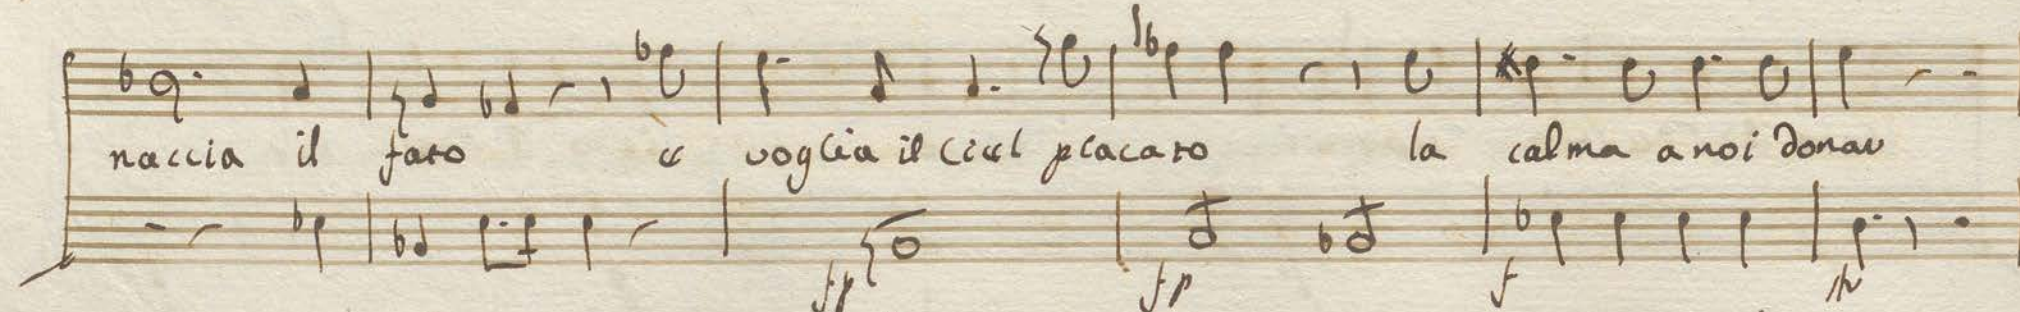 naccia il fato e voglia il Ciel placato la calma a noi donar
fp fp f